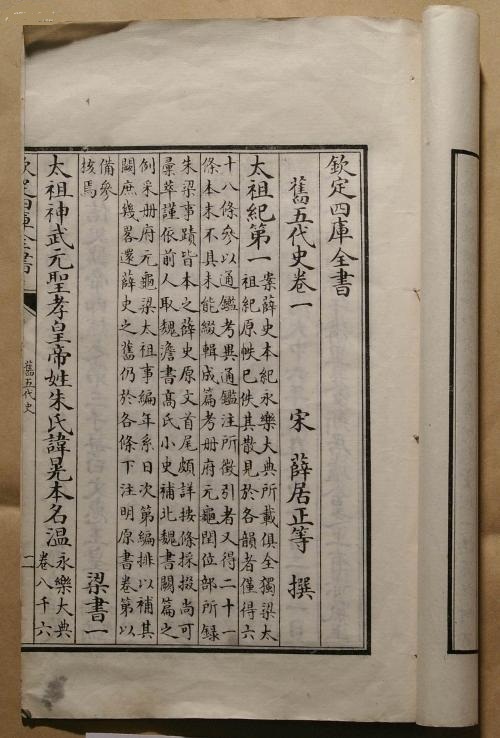 欽定四庫全書
舊五代史卷一 宋 薛居正等 撰
太祖紀第一
案薛史本紀永樂大典所載俱全獨梁太
祖紀原帙已佚其散見於各韻者僅得六
十八條參以通鑑考異通鑑注所徵引者又得二十一
條本末不具未能綴輯成篇考册府元龜閏位部所錄
朱梁事蹟皆本之薛史原文首尾頗詳按條採掇尚可
彙萃謹依前人取魏澹書高氏小史補北魏書闕篇之
例采册府元龜梁太祖事編年系日次第編排以補其
闕庶幾畧還薛史之舊仍於各條下注明原書卷第以
備參
核焉
梁書一
太祖神武元聖孝皇帝姓朱氏諱晃本名温
永樂大典
卷八千六
欽定四庫全書
舊五代史